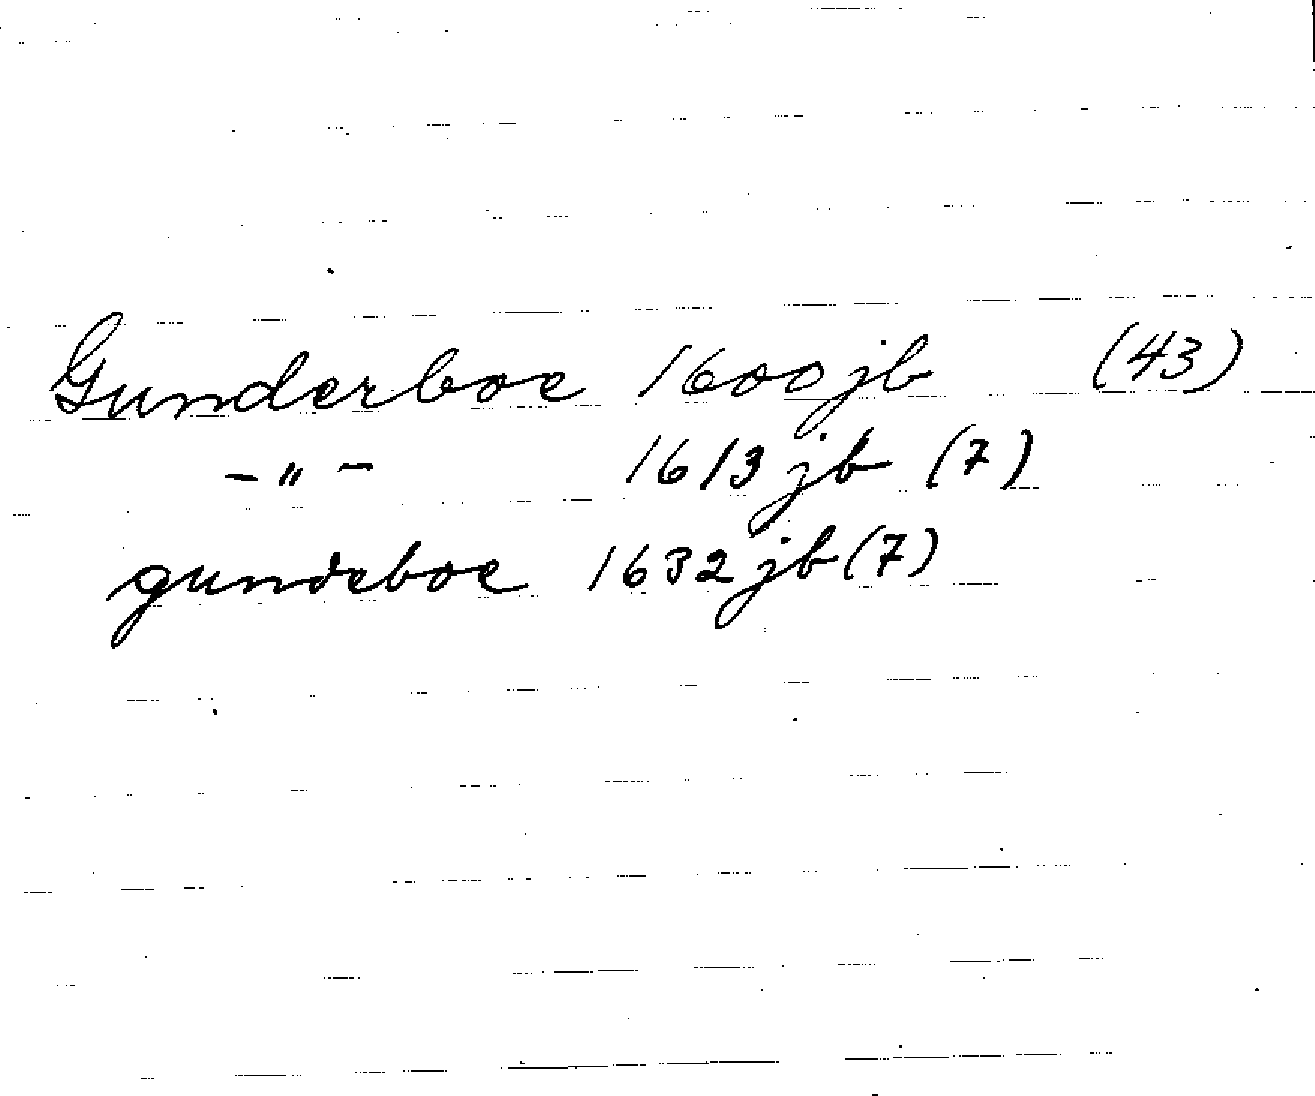 Gunderboe 1600 jb (43)
-"- 1613 jb (7)
gundeboe 1632 jb (7)